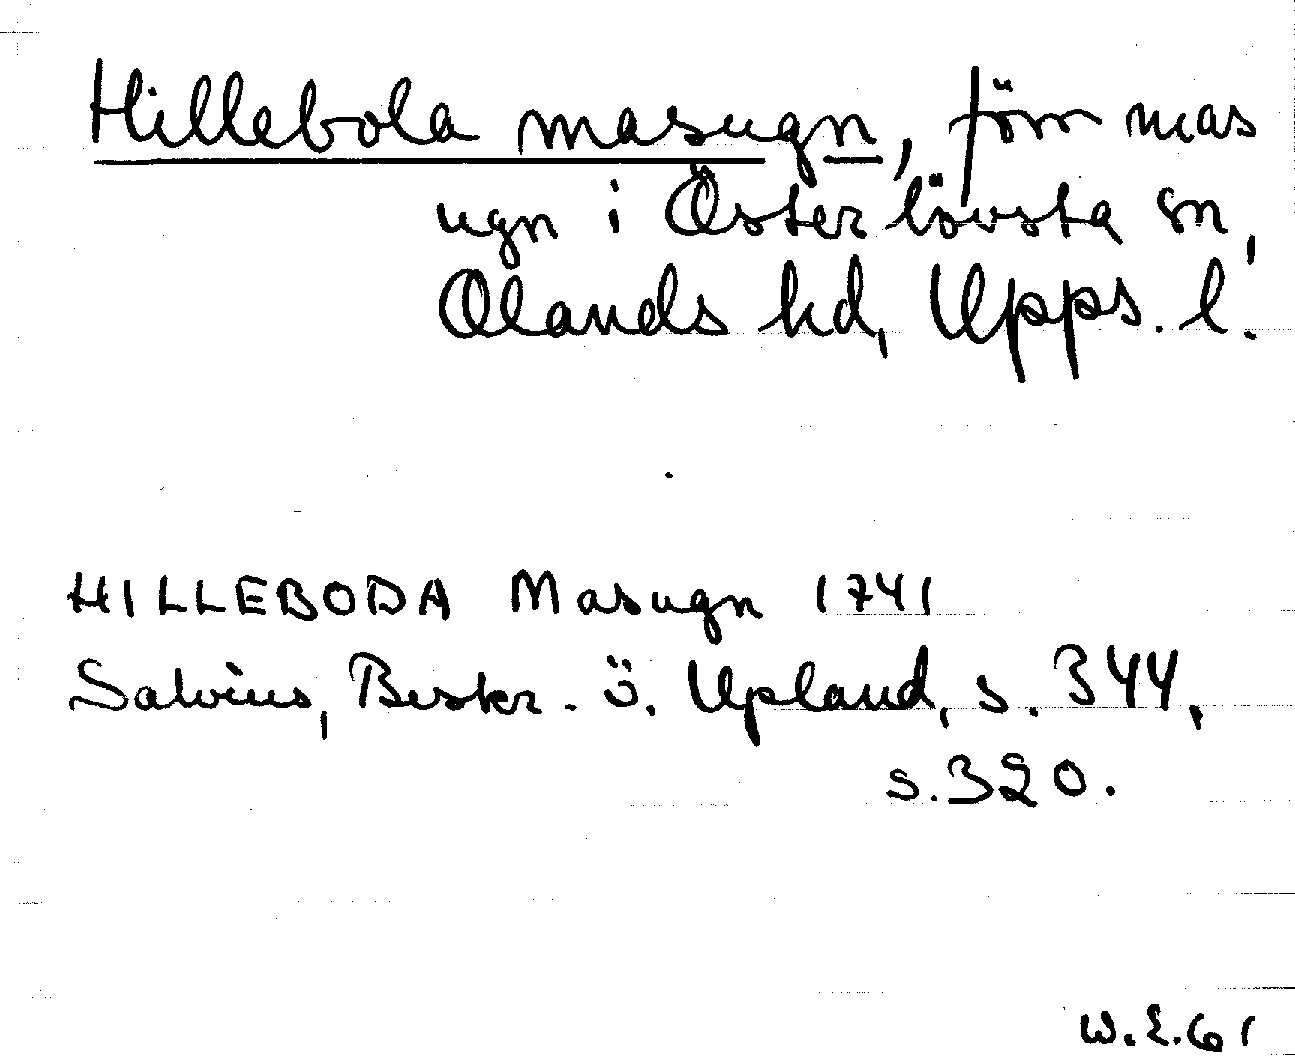 Hillebola masugn, förr mas
ugn i Österlövsta sn,
Olands hd, Upps. l.
HILLEBODA Masugn 1741
Salvius, Beskr. ö. Upland, s. 344,
s. 320.
W.E.61